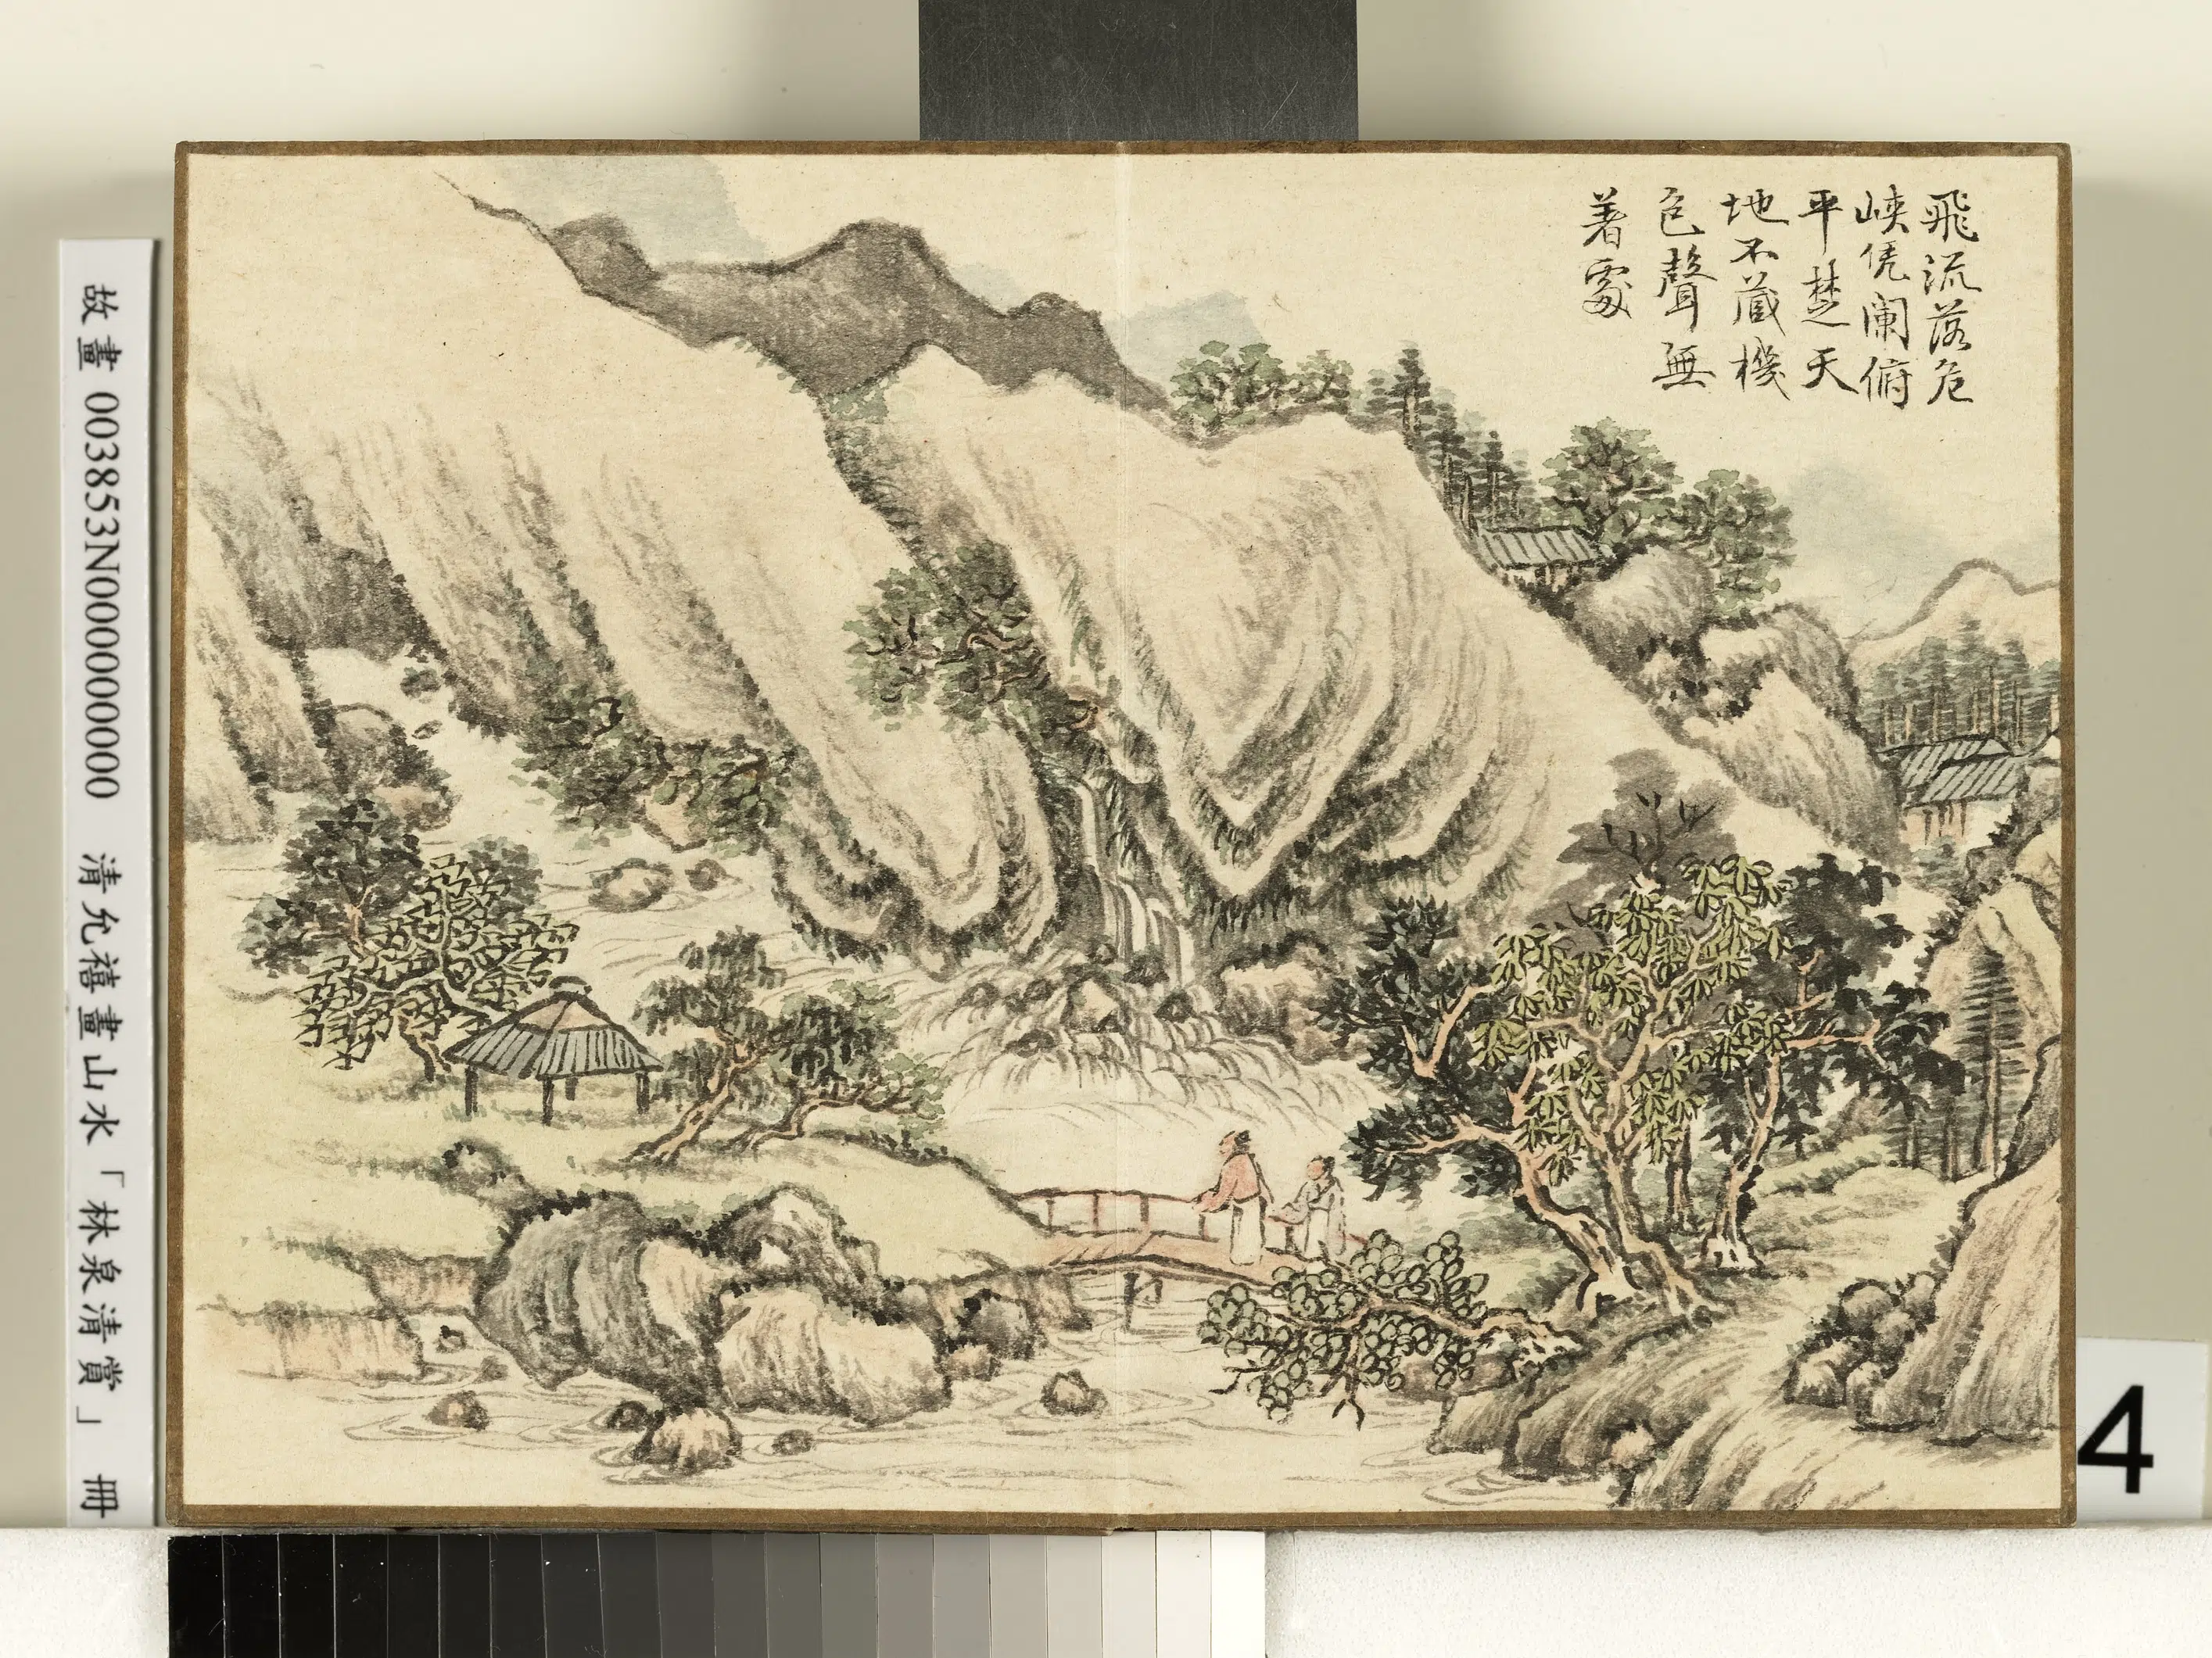 飛流落危
峽凭闌俯
平楚天
地不蔵機
色聲無
著處
故畫 003853N000000000 清允禧畫山水「林泉清賞」 冊
4